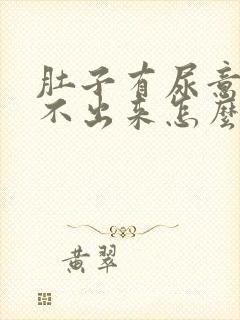 肚子有尿意
不出来怎麼
黄翠